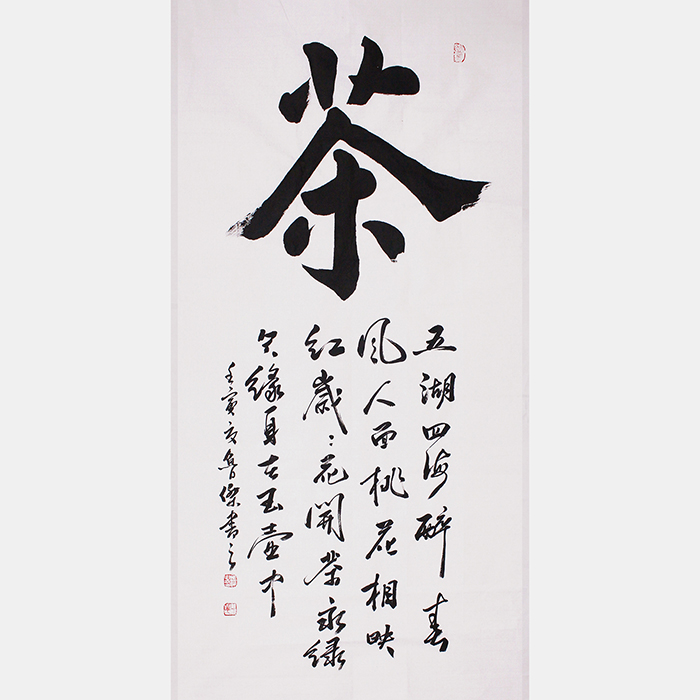 茶
五湖四海醉春
风人面桃花相映
红岁岁花開茶永绿
只缘身在玉壶中
壬寅夜鲁杰書之